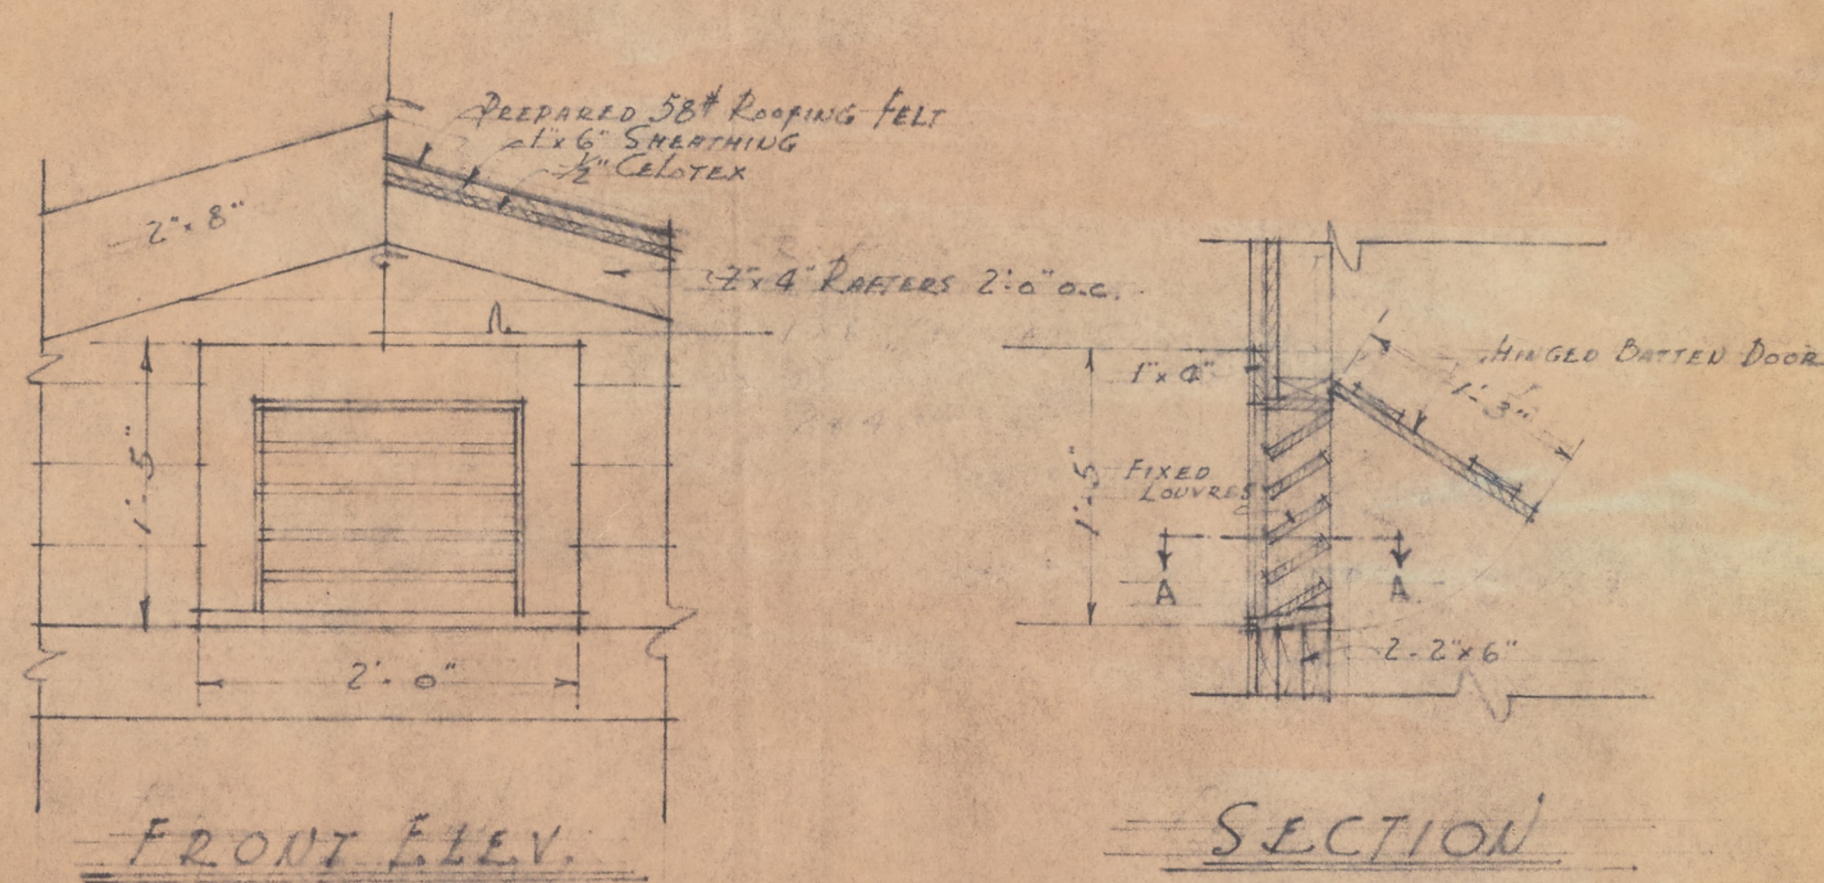 PREPARED 58# ROOFING FELT
1"x 6" SHEATHING
½" CELOTEX
2"x 8"
2"x 4" RAFTERS 2'-0" o.c.
1'-5"
2'-0"
FRONT ELEV.
HINGED BATTEN DOOR
1'-3"
1"x 4"
FIXED
LOUVRES
1'-5"
A
A
2-2"x6"
SECTION